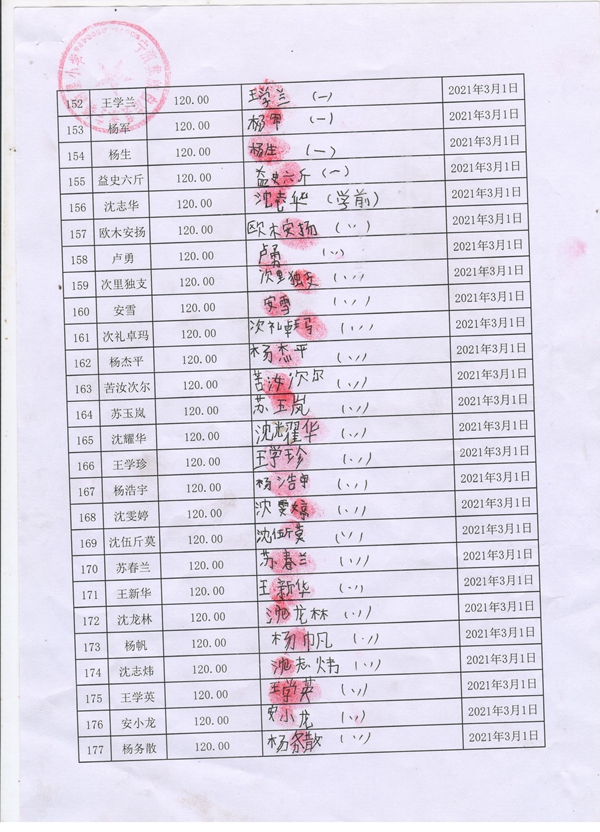 小学
152 王学兰 120.00 王学兰 (一) 2021年3月1日
153 杨军 120.00 杨甲 (一) 2021年3月1日
154 杨生 120.00 杨生 (一) 2021年3月1日
155 益史六斤 120.00 益史六斤 (一) 2021年3月1日
156 沈志华 120.00 沈志华 (学前) 2021年3月1日
157 欧木安扬 120.00 欧木安扬 (、、) 2021年3月1日
158 卢勇 120.00 卢勇 (、、) 2021年3月1日
159 次里独支 120.00 次里独支 (、、) 2021年3月1日
160 安雪 120.00 安雪 (、、) 2021年3月1日
161 次礼卓玛 120.00 次礼卓玛 (、、) 2021年3月1日
162 杨杰平 120.00 杨杰平 (、、) 2021年3月1日
163 苦汝次尔 120.00 苦汝次尔 (、、) 2021年3月1日
164 苏玉岚 120.00 苏玉岚 (、、) 2021年3月1日
165 沈耀华 120.00 沈耀华 (、、) 2021年3月1日
166 王学珍 120.00 王学珍 (、、) 2021年3月1日
167 杨浩宇 120.00 杨浩甲 (、、) 2021年3月1日
168 沈雯婷 120.00 沈雯婷 (、、) 2021年3月1日
169 沈伍斤莫 120.00 沈伍斤莫 (、、) 2021年3月1日
170 苏春兰 120.00 苏春兰 (、、) 2021年3月1日
171 王新华 120.00 王新华 (、、) 2021年3月1日
172 沈龙林 120.00 沈龙林 (、、) 2021年3月1日
173 杨帆 120.00 杨帆 (、、) 2021年3月1日
174 沈志炜 120.00 沈志炜 (、、) 2021年3月1日
175 王学英 120.00 王学英 (、、) 2021年3月1日
176 安小龙 120.00 安小龙 (、、) 2021年3月1日
177 杨务散 120.00 杨务散 (、、) 2021年3月1日